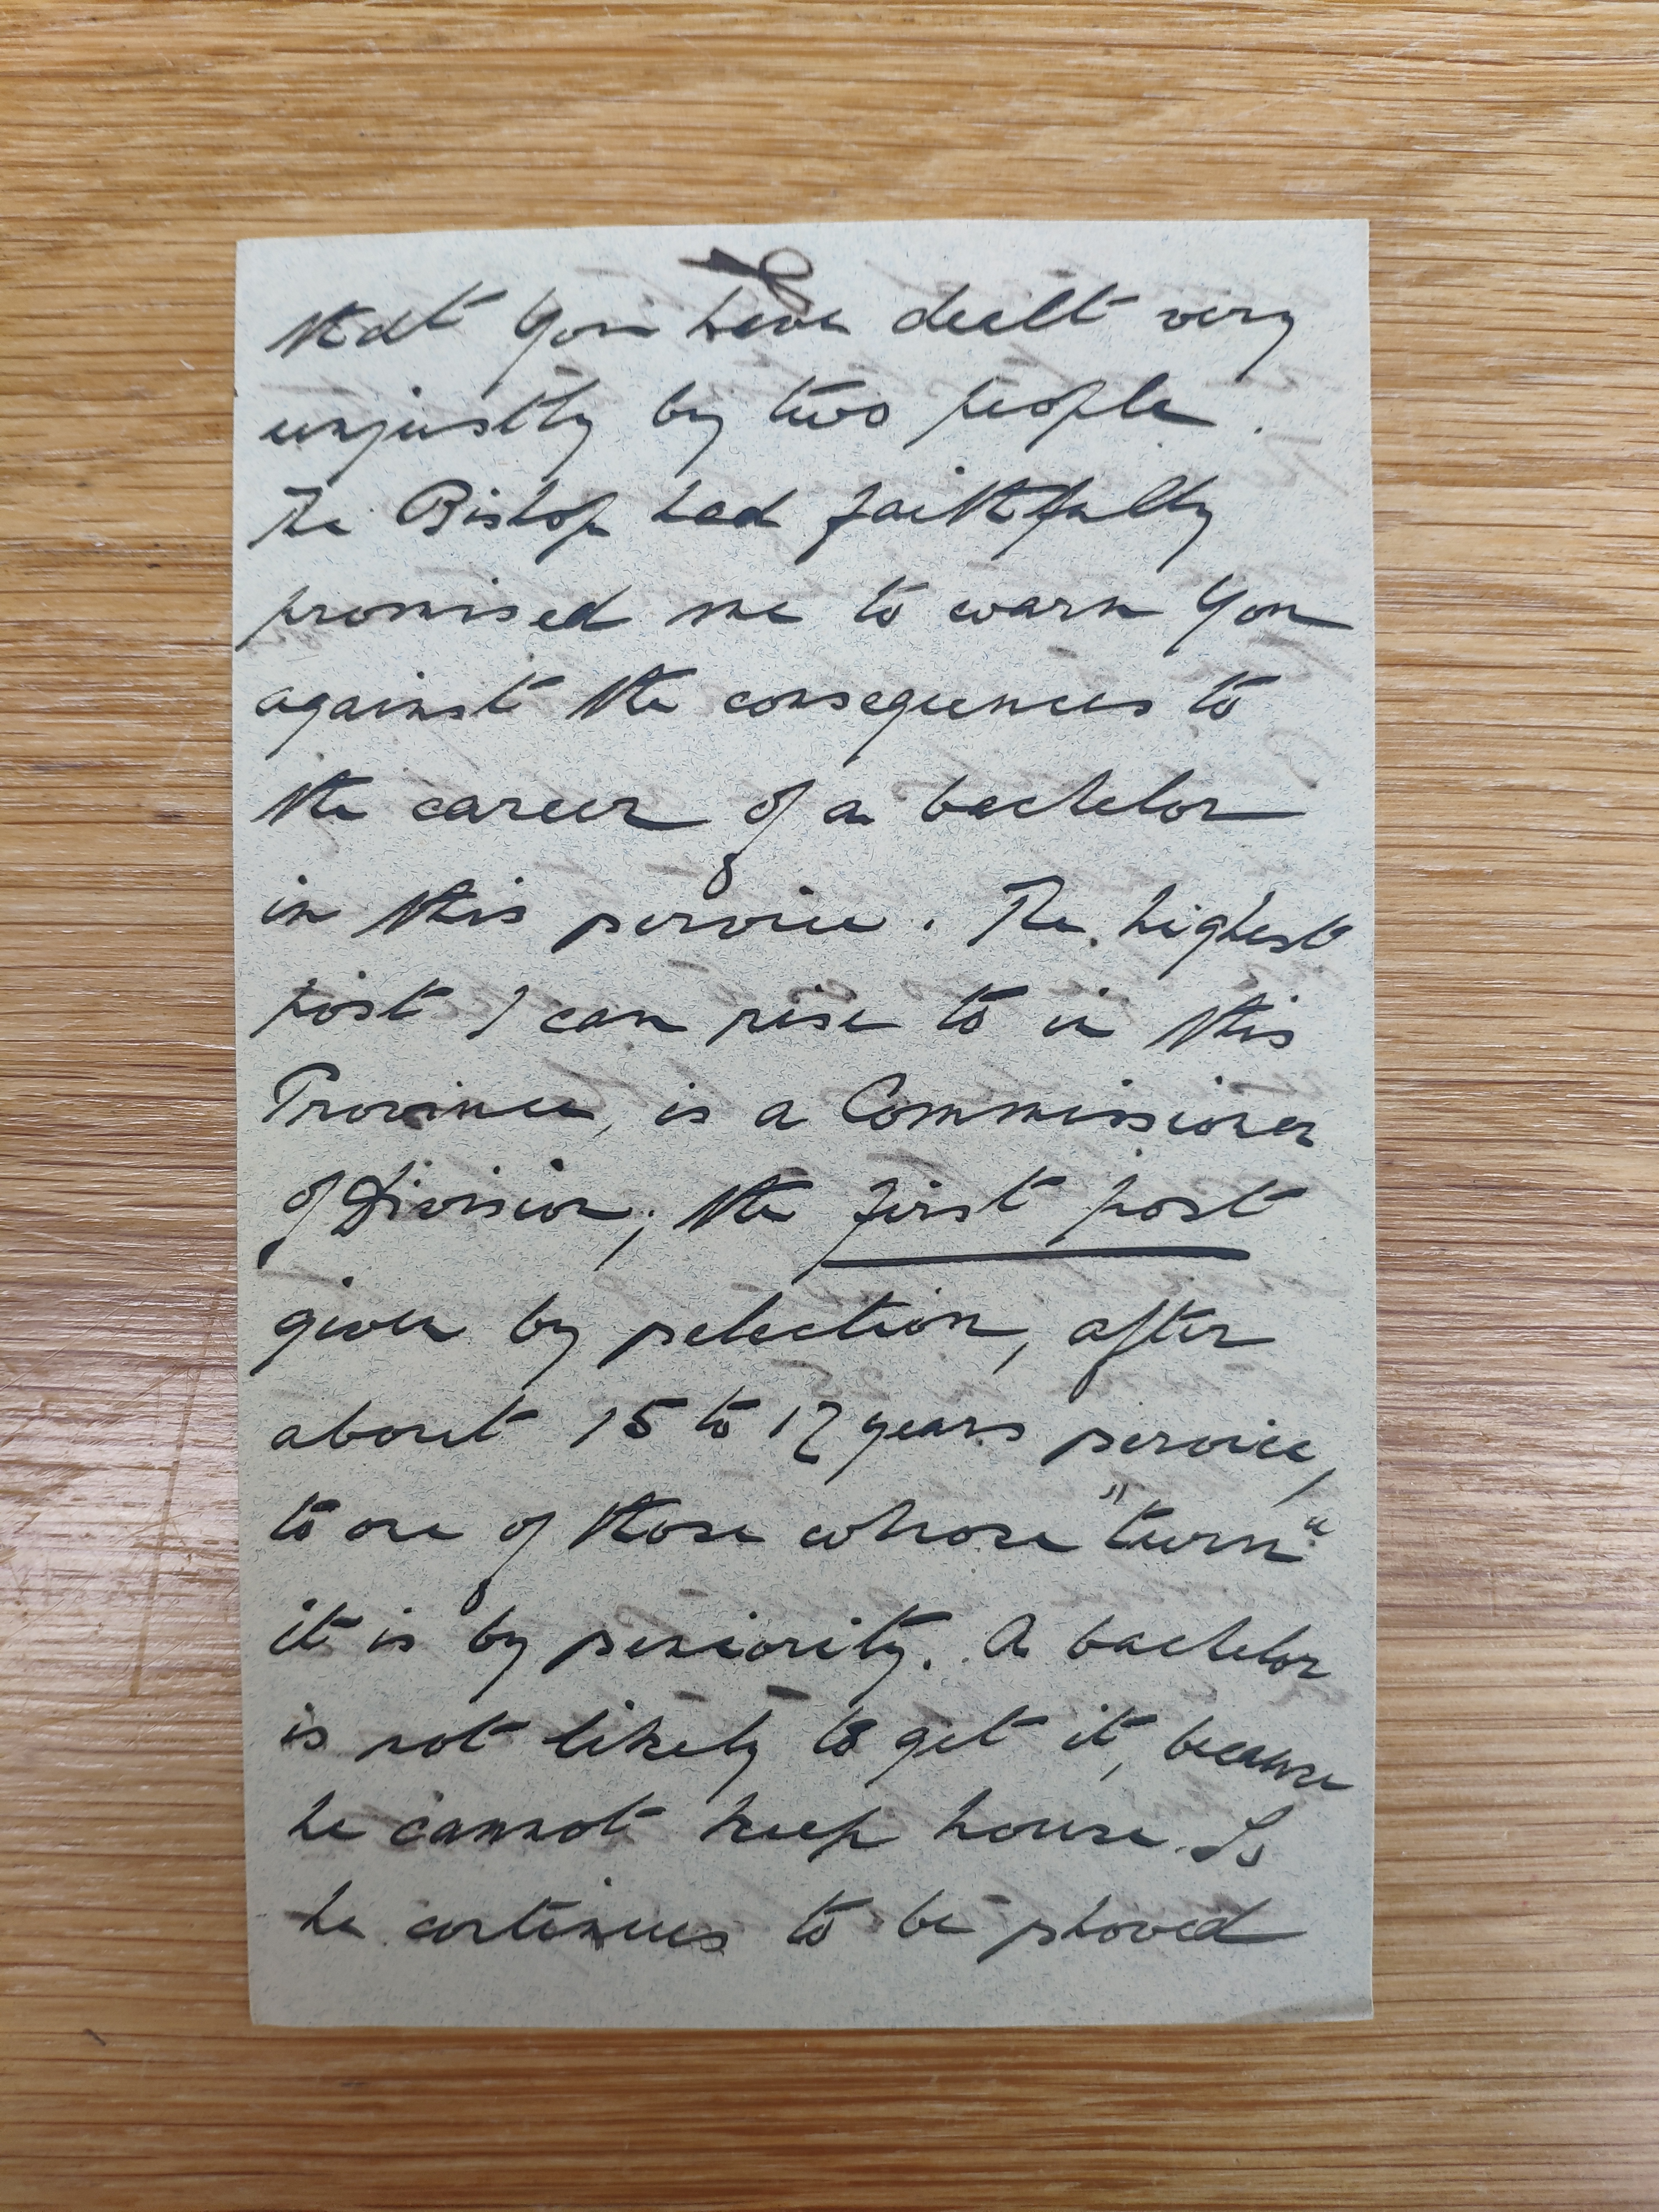 that you have dealt very
unjustly by two people.
The Bishop had faithfully
promised me to warn you
against the consequences to
the career of a bachelor
in this service. The highest
post I can rise to in this
Province, is a Commissioner
of Division; the first post
given by selection, after
about 15 to 17 years service,
to one of those whose "turn"
it is by seniority. A bachelor
is not likely to get it, because
he cannot keep house. So
he continues to be shoved